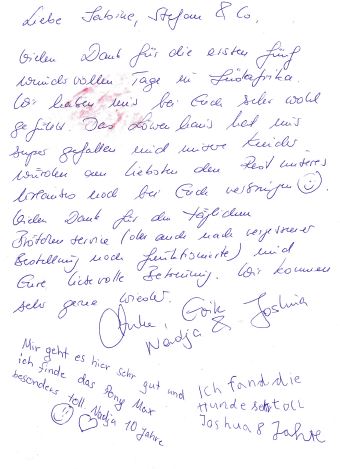 Liebe Sabine, Stefan & Co,
Vielen Dank für die ersten fünf
wundervollen Tage in Südafrika.
Wir haben uns bei Euch sehr wohl
gefühlt. Das Löwenhaus hat uns
super gefallen und unsere Kinder
würden am liebsten den Rest unseres
Urlaubes noch bei Euch verbringen
Vielen Dank für den täglichen
Brötchenservice (der auch nach vergessener
Bestellung noch funktionierte) und
Eure liebevolle Betreuung. Wir kommen
sehr gerne wieder.
Erik, Joshua
Nadja &
Mir geht es hier sehr gut und
ich finde das Pony Max
besonders toll. Nadja 10 Jahre
Ich fand die
Hunde sehr toll
Joshua 8 Jahre